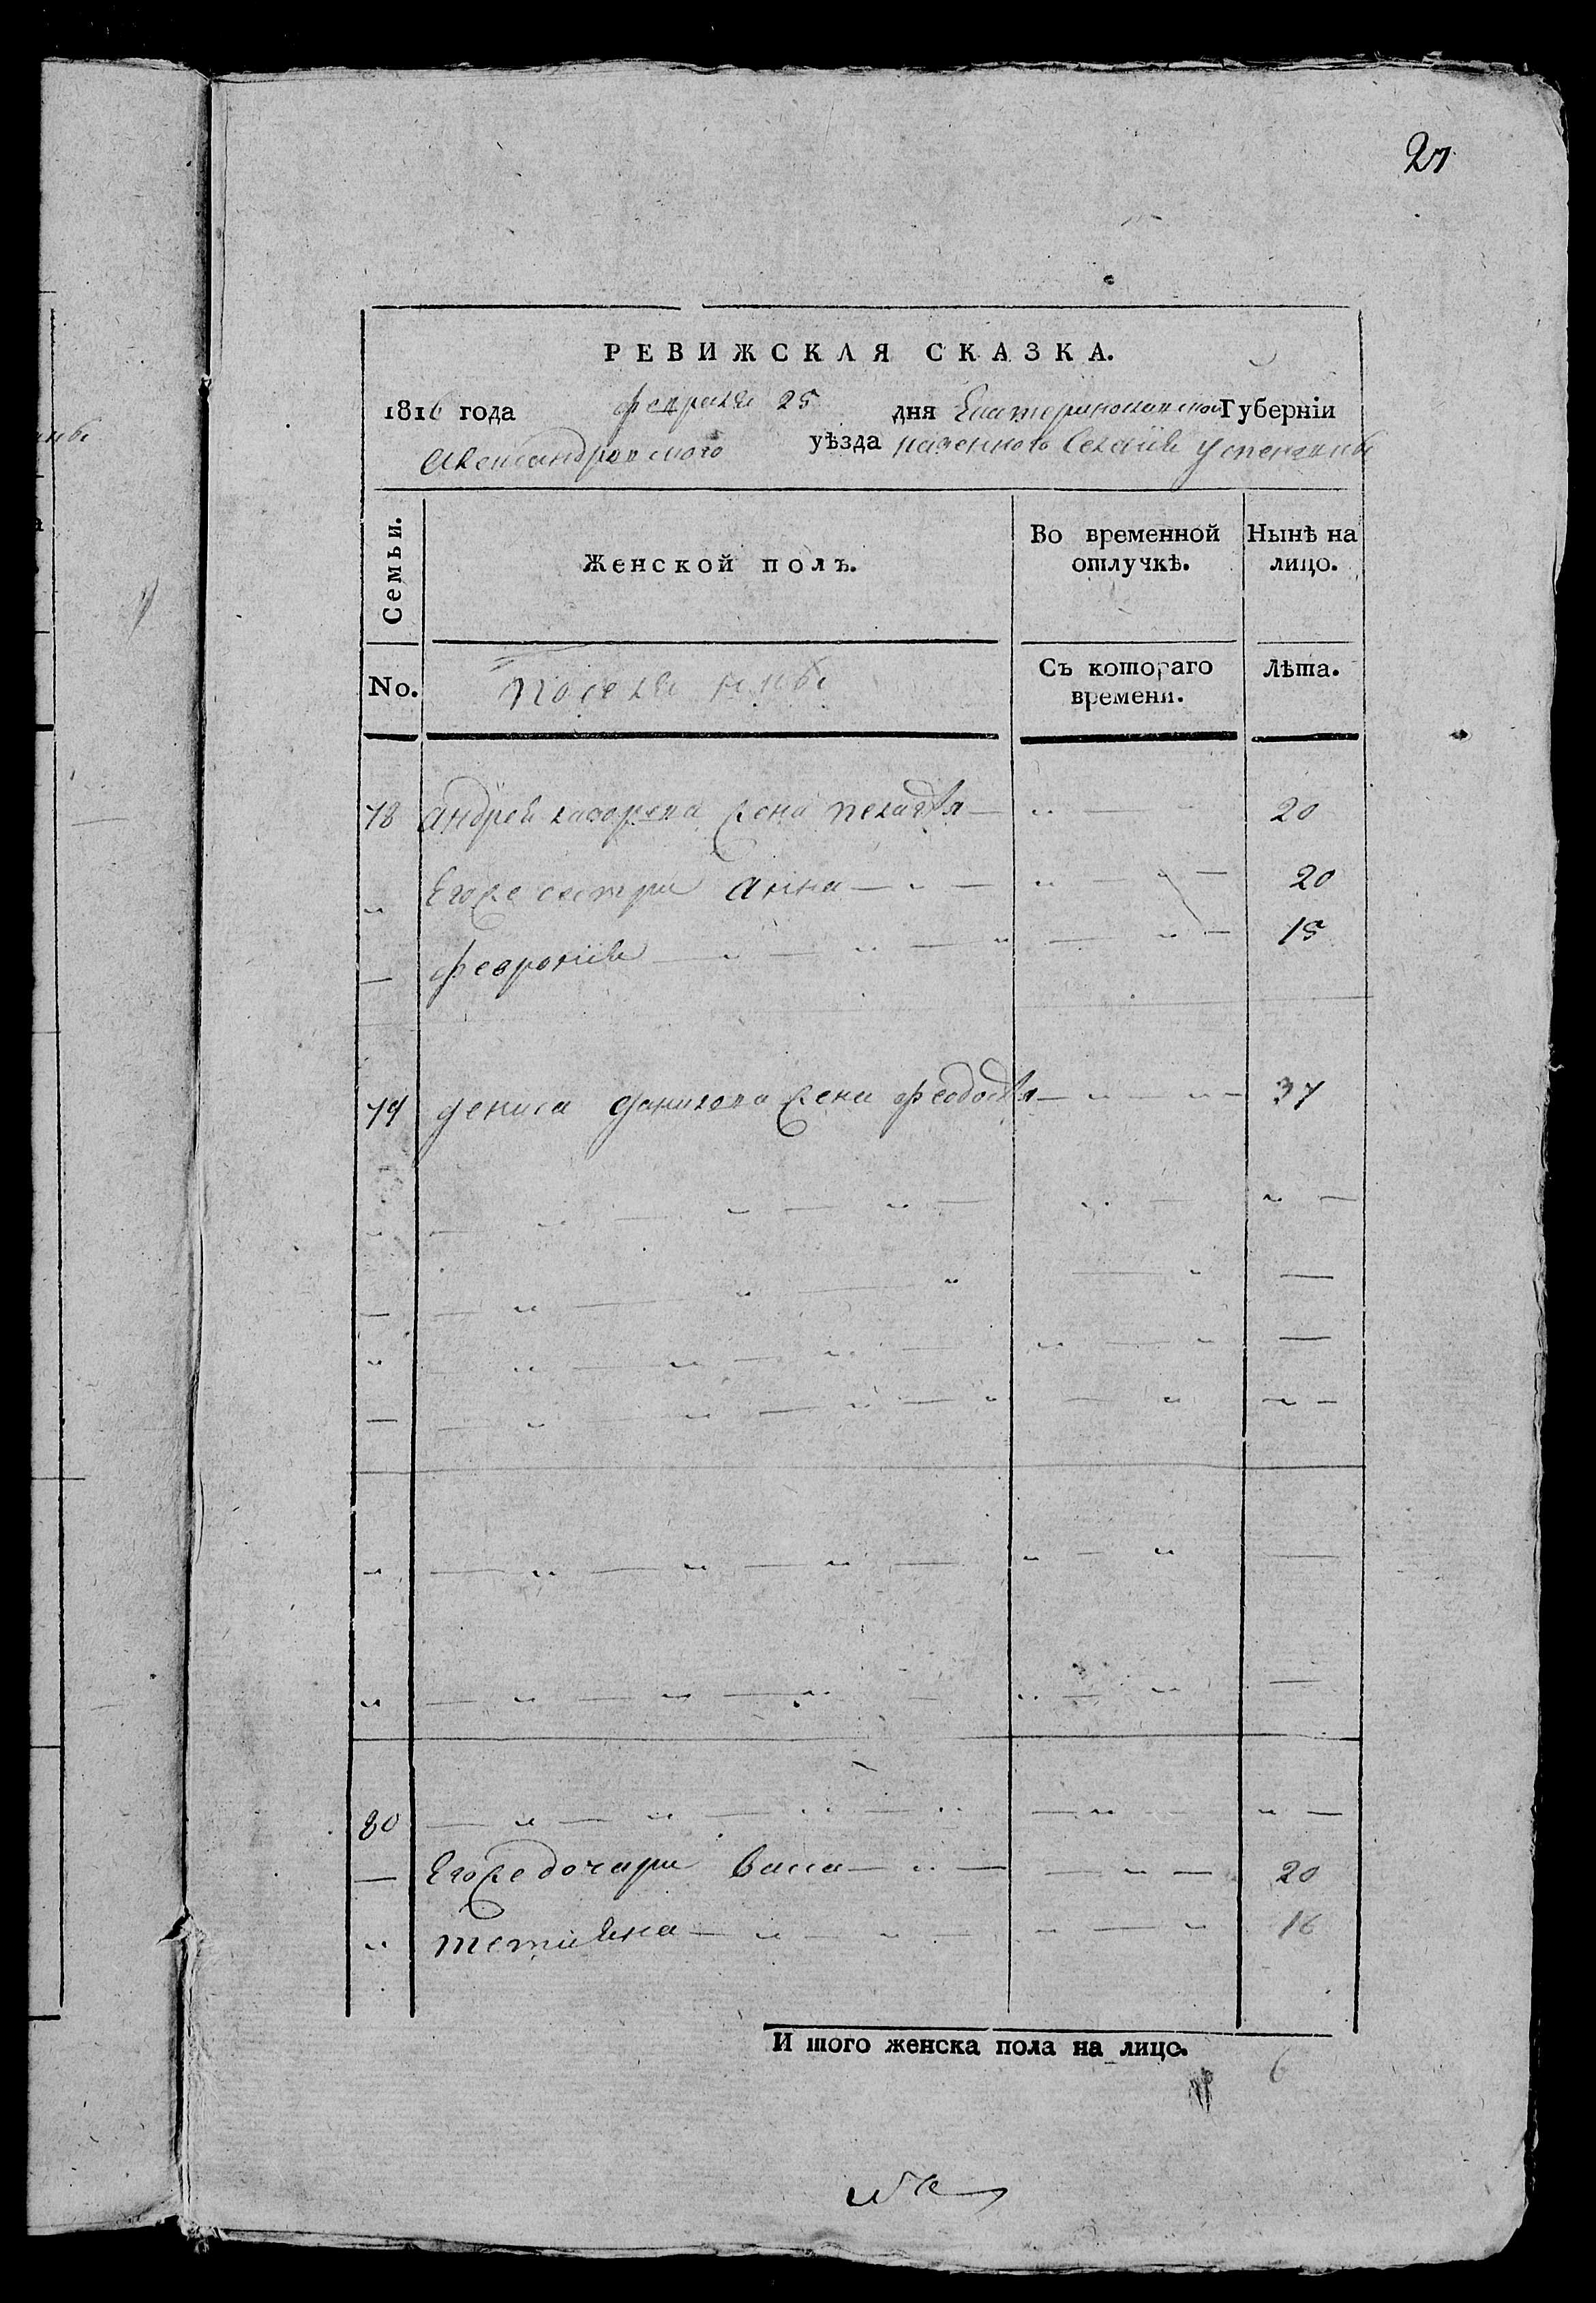 27
РЕВИЖСКАЯ СКАЗКА.
1816 года февраля 25 дня Екатеринославской Губерніи
Александровского уѣзда казенного Селенія Успеновки
Семьи. Женской полъ. Во временной отлучкѣ. Нынѣ на лицо.
No. Поселянки Съ котораго времени. Лѣта.
78 Андрея Лазорева жена Пелагѣя — 〃 — 20
〃 Егоже сестри Анна — 〃 — 〃 — 〃 — 20
— Феврония — 〃 — 〃 — 〃 — 〃 — 15
79 Дениса Данилова жена Феодосѣя — 〃 — 〃 — 37
80 — 〃 — 〃 — 〃 — 〃 — 〃 — 〃 —
— Егоже дочери Васса — 〃 — — 〃 — 20
〃 Тетияна — 〃 — 〃 — 〃 — 〃 16
И того женска пола на лицо. 6